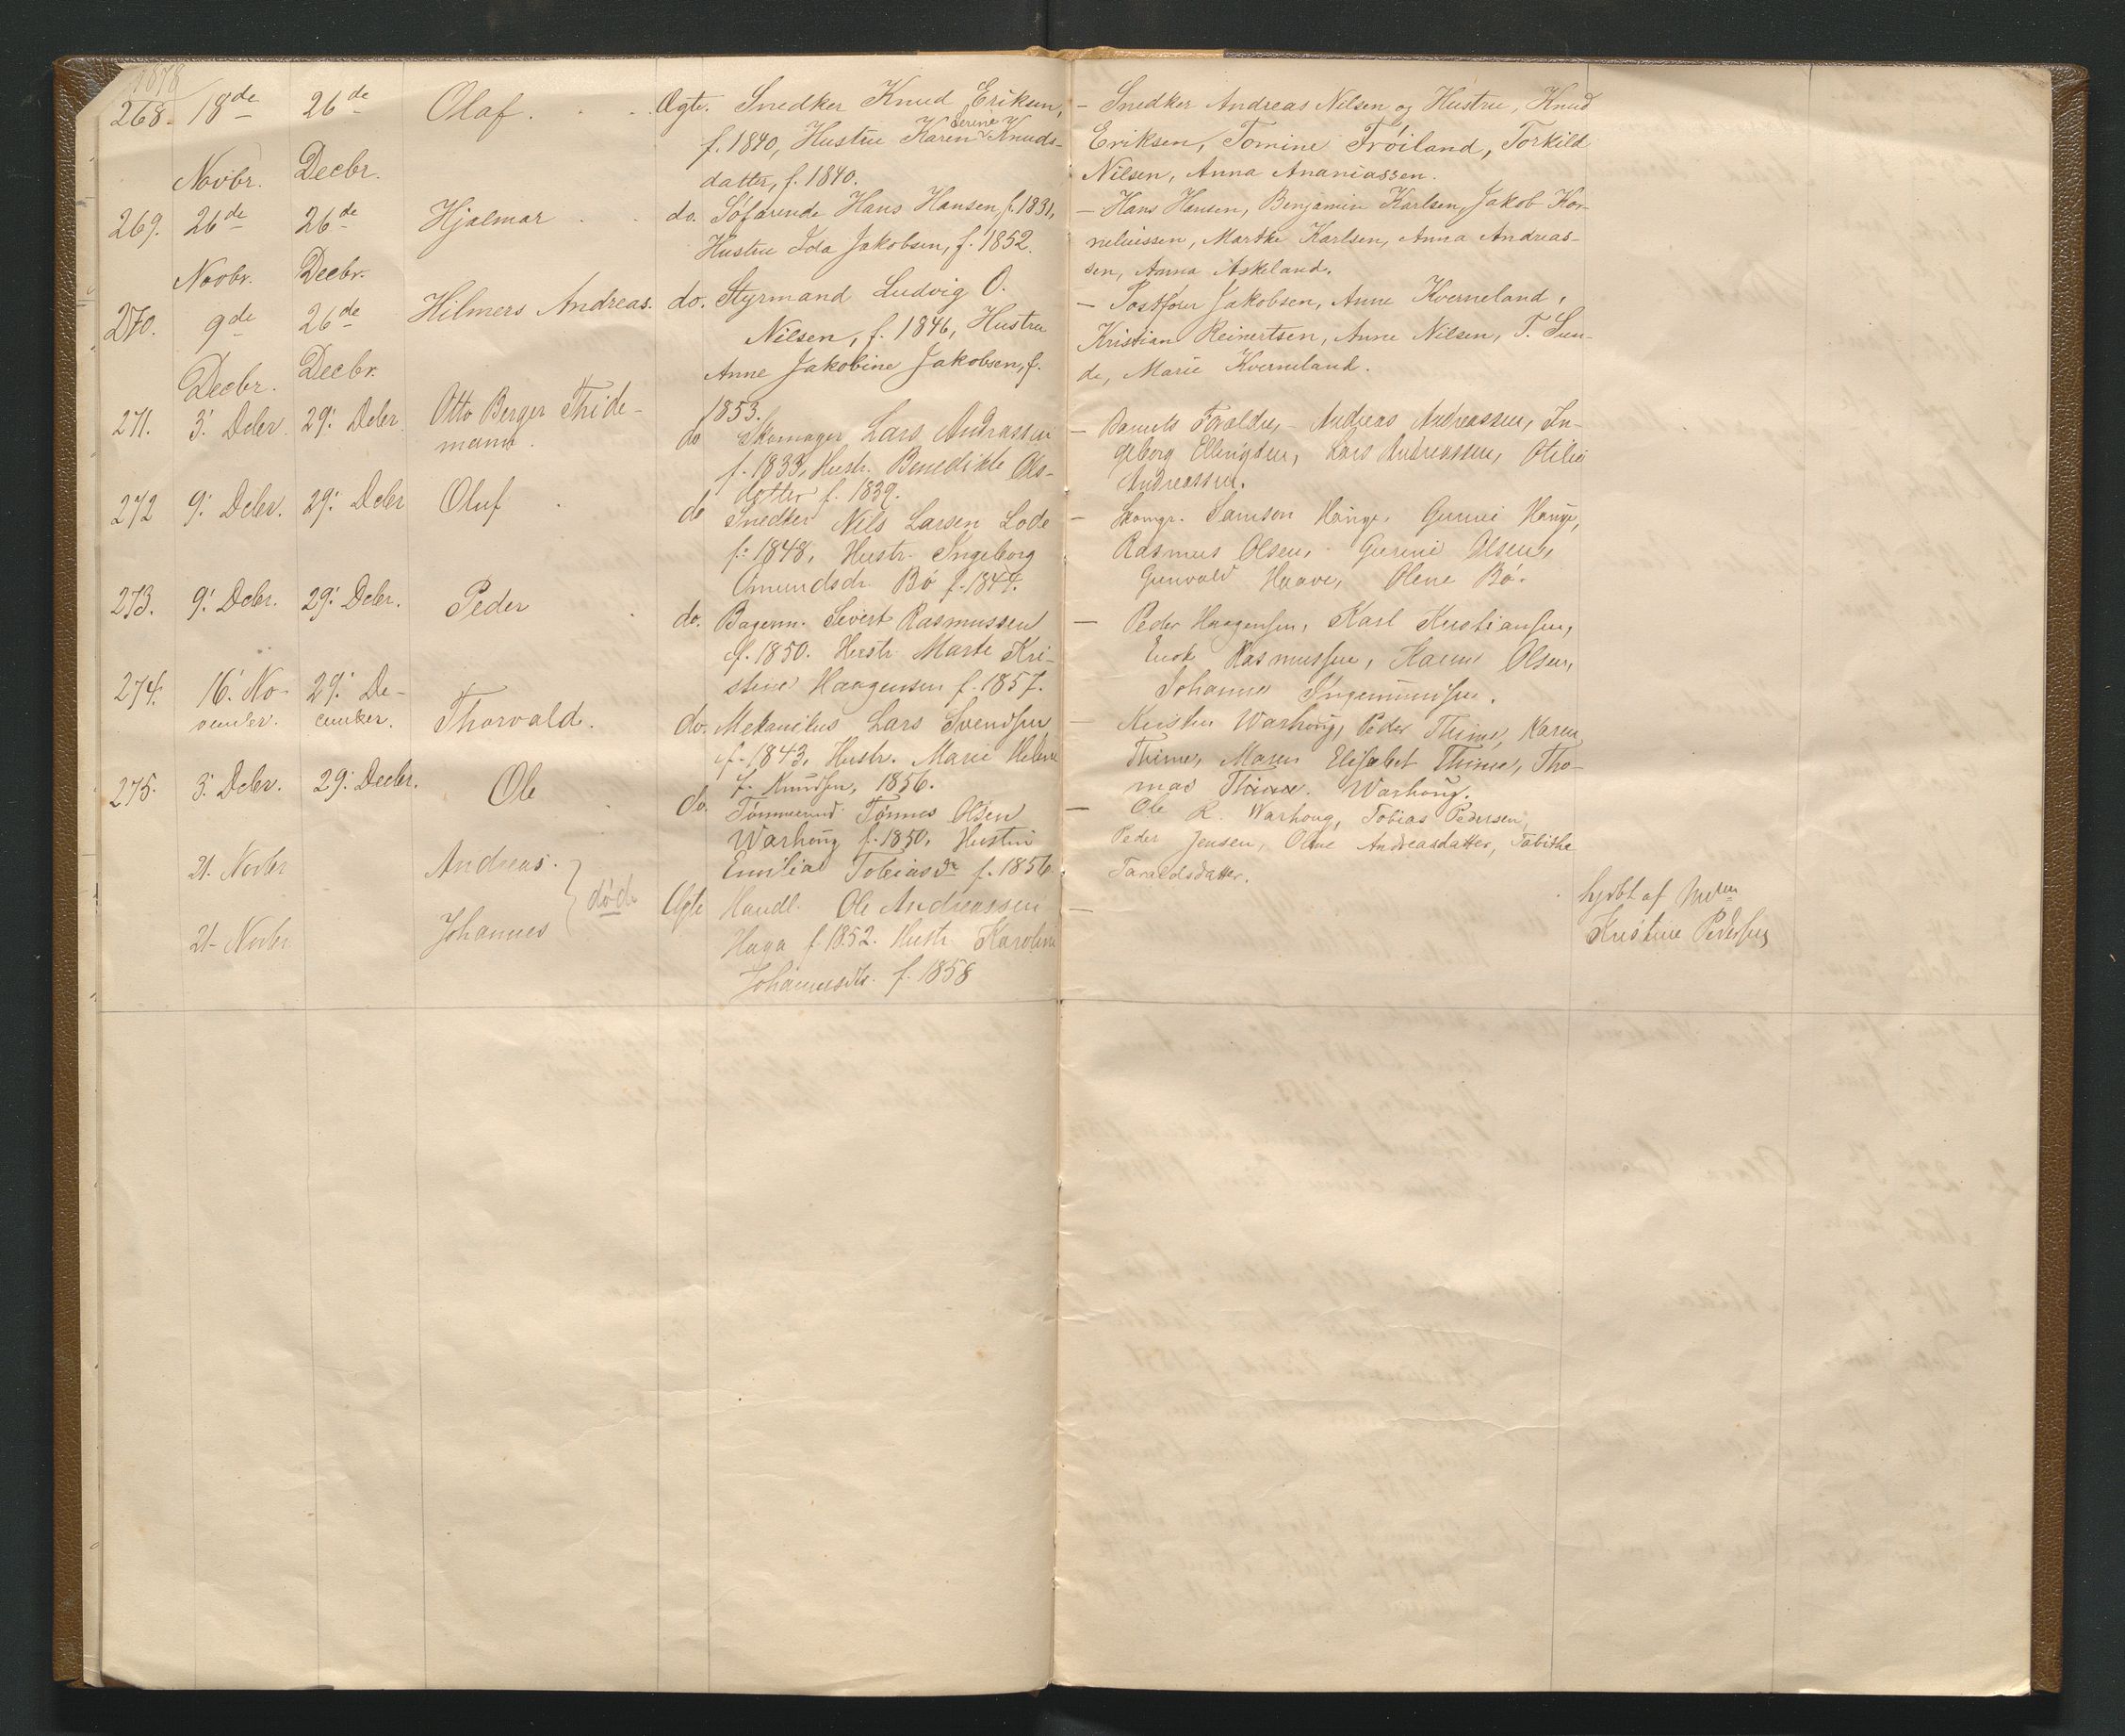 1878
268. 18de 26de Olaf. Ægte. Snedker Knud Eriksen,
Novbr. Decbr. f. 1840, Hustru Karen Serine Knuds-
datter, f. 1840.
269. 26de 26de Hjalmar do. Søfarende Hans Hansen, f. 1831,
Novbr. Decbr. Hustru Ida Jakobsen, f. 1852.
270. 9de 26de Hilmers Andreas. do. Styrmand Ludvig O.
Decbr. Decbr. Nilsen, f. 1846, Hustru
Anne Jakobine Jakobsen, f.
1853.
271. 3. Dcbr. 29. Dcbr Otto Berger Thide- do Skomager Lars Andreassen
mann. f. 1833, Hustr. Benedikte Ols-
datter f. 1839.
272 9. Dcbr. 29. Dcbr Oluf do Snedker Nils Larsen Lode
f. 1848, Hustr. Ingeborg
Amundsdr. Bø f. 1844.
273. 9. Dcbr. 29. Dcbr. Peder do. Bagerm. Sivert Rasmussen
f. 1850. Hustr. Marte Kri-
stine Haagensen f. 1857.
274. 16. No- 29. De- Thorvald. do. Mekanikus Lars Svendsen
vember. cember. f. 1843, Hustr. Marie Helene
f. Knudsen, 1856.
275. 3. Dcbr. 29. Decbr. Ole do. Tømmermd. Tønnes Olsen
Warhoug f. 1850, Hustru
Emilia Tobiasdr f. 1856
21. Novbr Andreas. død Ægte Handl. Ole Andreassen
21- Novbr Johannes Haga f. 1852. Hustr. Karoline
Johannesdr. f. 1858
- Snedker Andreas Nilsen og Hustru, Knud
Eriksen, Tomine Frøiland, Torkild
Nilsen, Anna Ananiassen.
- Hans Hansen, Benjamin Karlsen, Jakob Kor-
neliussen, Marthe Karlsen, Anna Andreas-
sen, Anna Askeland.
- Postfører Jakobsen, Anne Kverneland,
Kristian Reinertsen, Anne Nilsen, T. Sun-
de, Marie Kverneland.
- Barnets Forældre, Andreas Andreassen, In-
geborg Ellingsen, Lars Andreassen, Otilie
Andreassen.
- Skomgr. Samson Hauge, Gurine Hauge,
Rasmus Olsen, Gurine Olsen,
Gunvald Haave, Olene Bø.
- Peder Haagensen, Karl Kristiansen,
Enok Rasmussen, Karen Olsen,
Johanne Ingemundsen.
- Warhoug, Peder Thime, Karen
Thime, Maren Elisabet Thime, Tho-
mas Thime. Warhoug.
- Ole R. Warhoug, Tobias Pedersen,
Peder Jensen, Oline Andreasdatter, Tabithe
Taraldsdatter.
- hjdbt af
Kristine Pedersen